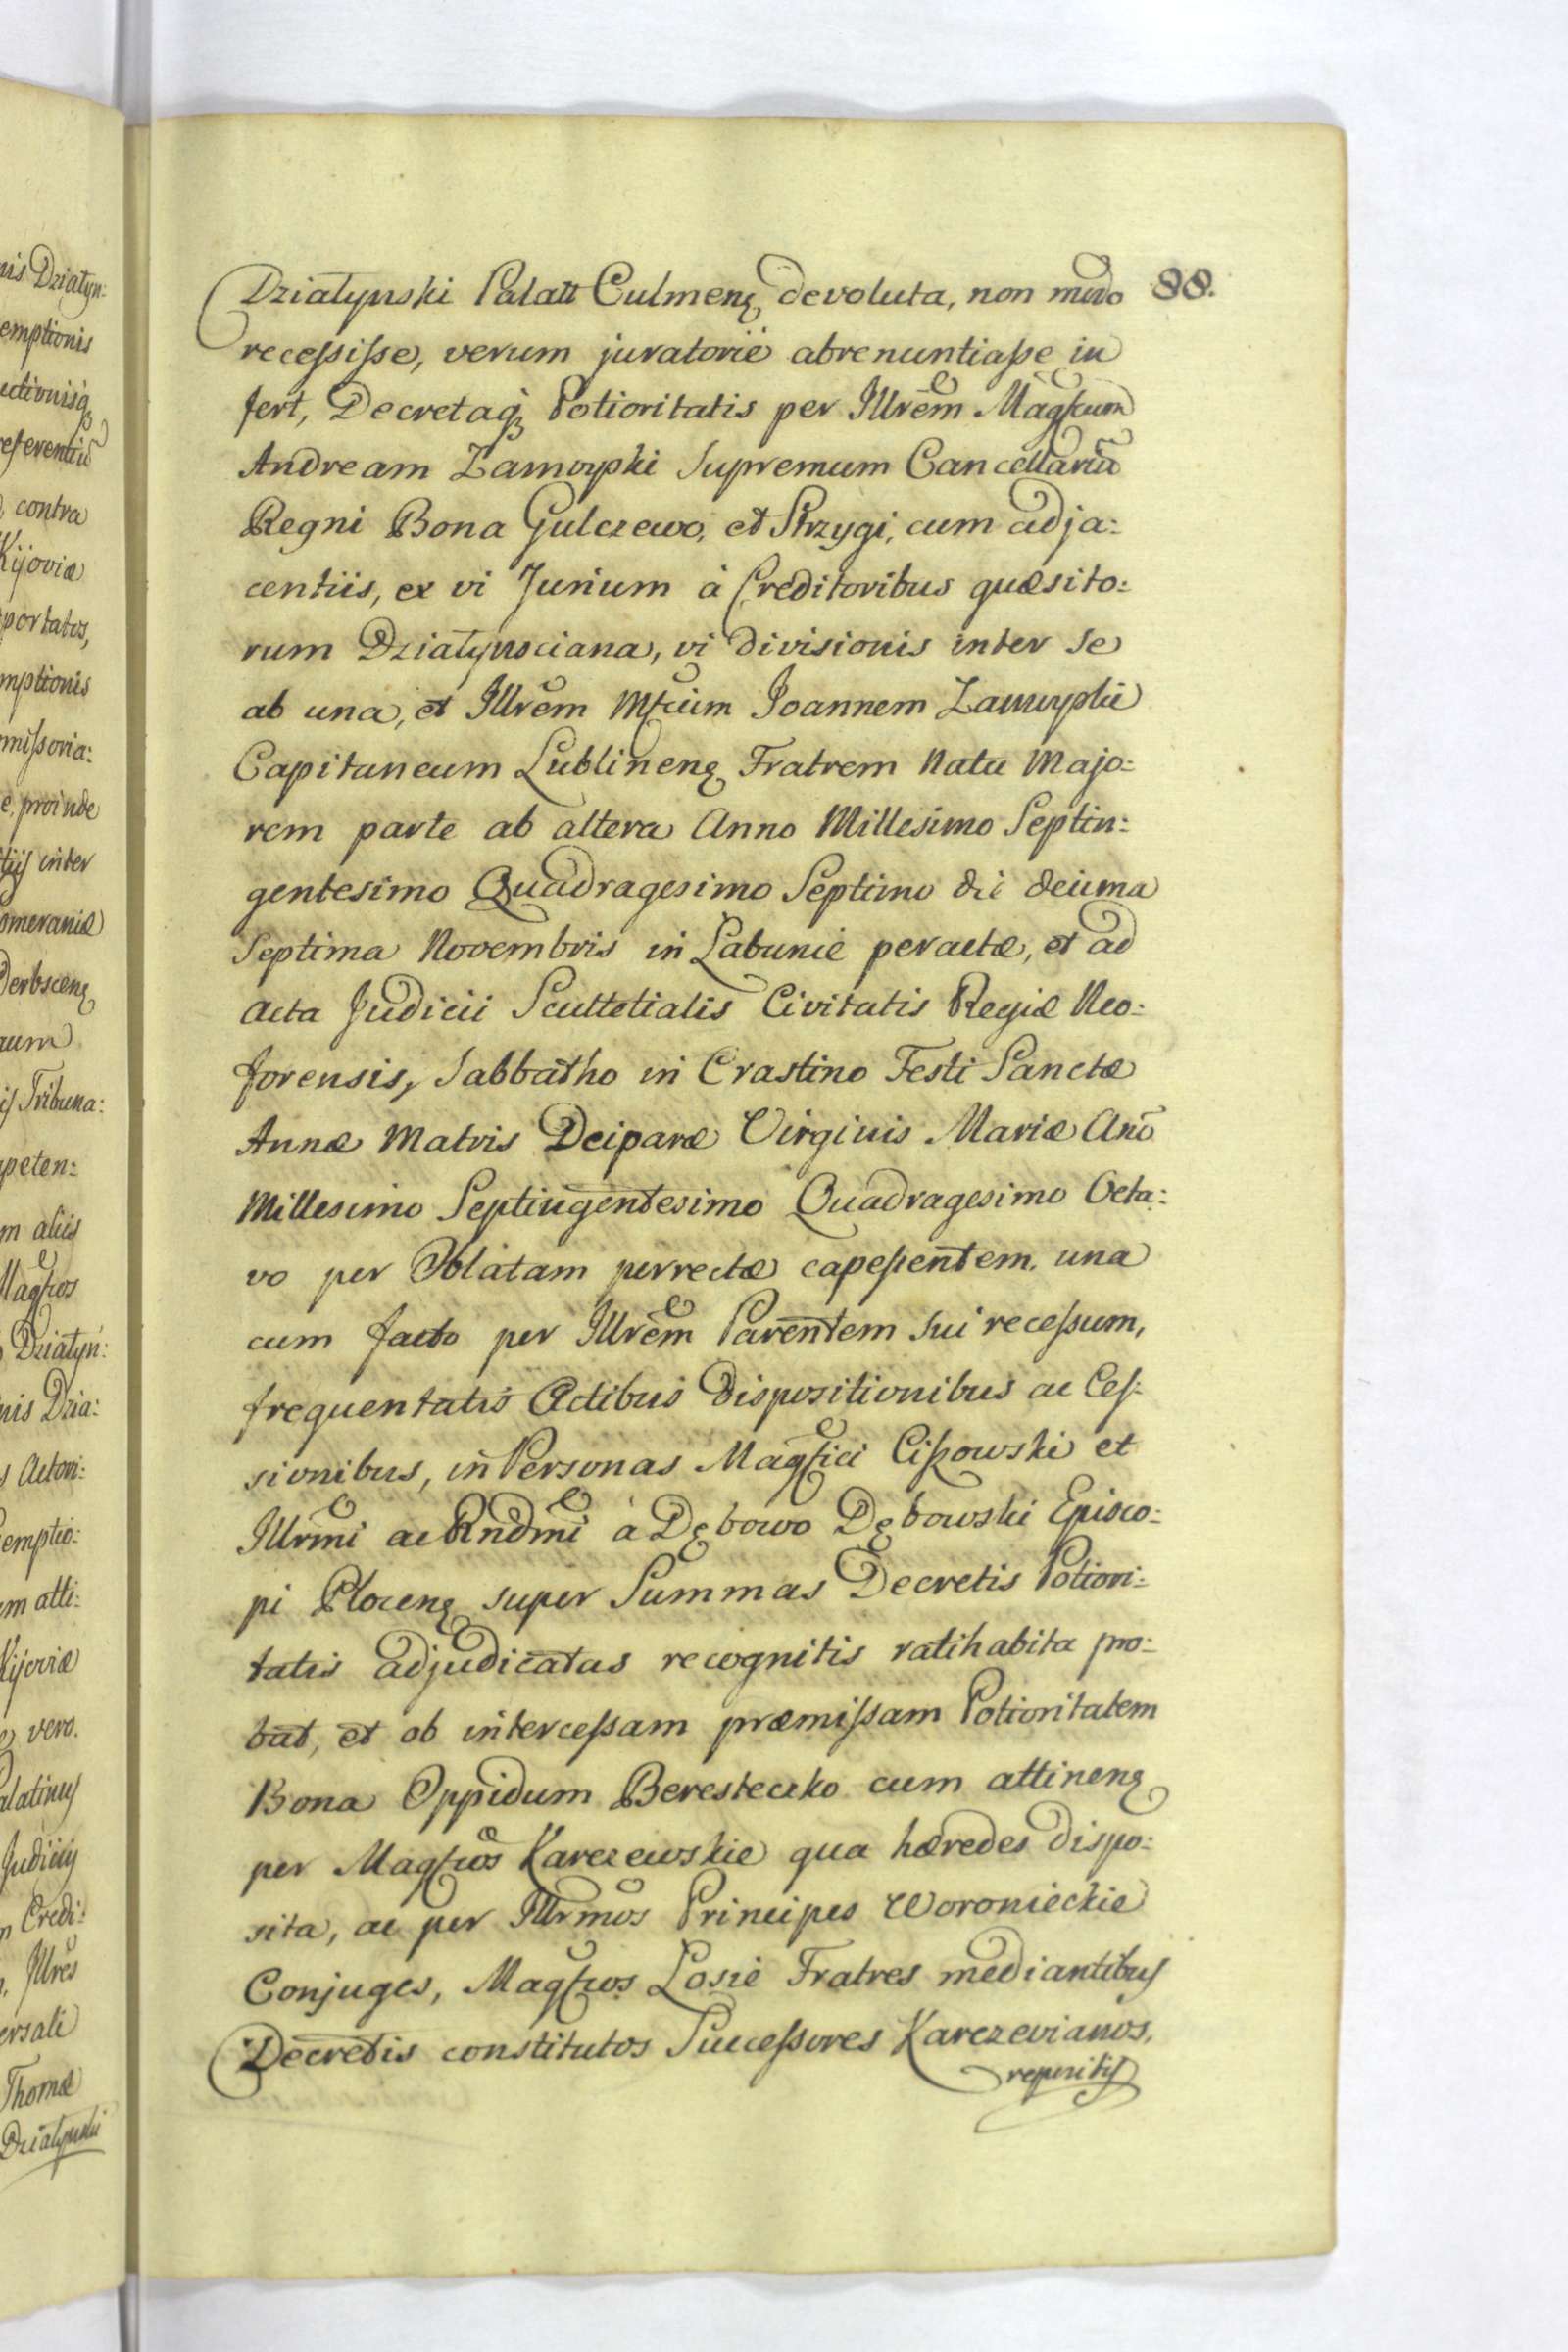 88.
Działynski Palatt Culmenę devoluta, non modo
recessisse, verum juratorie abrenuntiasse in
fert, Decretaq; Potioritatis per Illrem Magficum
Andream Zamoyski Supremum Cancellariũ
Regni Bona Gulczewo, et Strzygi, cum adja:
centiis, ex vi Jurium à Creditoribus quæsito:
rum Działynsciana, vi divisionis inter se
ab una, et Illrem Mficum Joannem Zamoyski
Capitaneum Lublinenę Fratrem Natu Majo:
rem parte ab altera Anno Millesimo Septin:
gentesimo Quadragesimo Septimo die decima
Septima Novembris in Łabunie peractæ, et ad
Acta Judicii Scultetialis Civitatis Regiæ Neo:
forensis, Sabbatho in Crastino Festi Sanctæ
Annæ Matris Deiparæ Virginis Mariæ Anõ
Millesimo Septingentesimo Quadragesimo Octa:
vo per Oblatam perrectæ capessentem, una
cum facto per Illrem Parentem sui recessum,
frequentatis Actibus Dispositionibus ac Ces:
sionibus, in Personas Magfici Ciszowski et
Illrmi ac Rndmi à Dębowo Dębowski Episco:
pi Plocenę super Summas Decretis Potiori:
tatis adjudicatas recognitis ratihabita pro:
bat, et ob intercessam præmissam Potioritatem
Bona Oppidum Beresteczko cum attinenę
per Magficos Karczewskie qua hæredes dispo:
sita, ac per Illrmos Principes Woronieckie
Conjuges, Magficos Łosie Fratres mediantibus
Decretis constitutos Successores Karczevianos,
repetitis